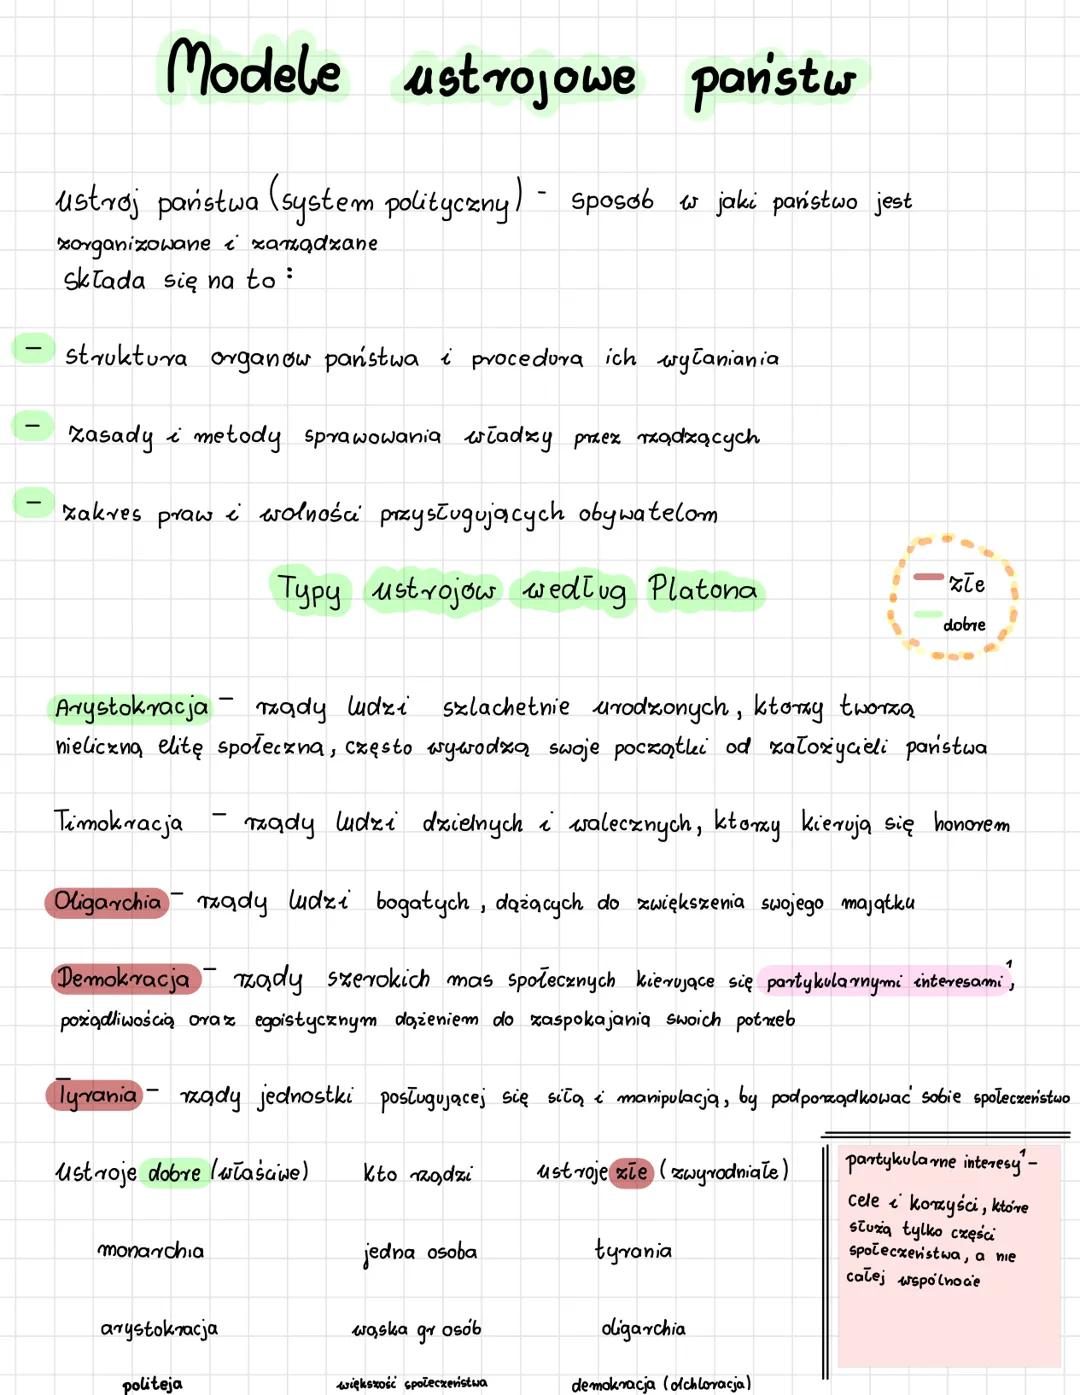 Modele ustrojowe państw
ustrój państwa (system polityczny) - sposób w jaki państwo jest
zorganizowane i zarządzane
Składa się na to :
- struktura organów państwa i procedura ich wyłaniania
- zasady i metody sprawowania władzy przez rządzących
- zakres praw i wolności przysługujących obywatelom
Typy ustrojów według Platona
- złe
- dobre
Arystokracja - rządy ludzi szlachetnie urodzonych, którzy tworzą
nieliczną elitę społeczną, często wywodzą swoje początki od założycieli państwa
Timokracja - rządy ludzi dzielnych i walecznych, którzy kierują się honorem
Oligarchia - rządy ludzi bogatych, dążących do zwiększenia swojego majątku
Demokracja - rządy szerokich mas społecznych kierujące się partykularnymi interesami¹,
pożądliwością oraz egoistycznym dążeniem do zaspokajania swoich potrzeb
Tyrania - rządy jednostki posługującej się siłą i manipulacją, by podporządkować sobie społeczeństwo
ustroje dobre (właściwe) kto rządzi ustroje złe (zwyrodniałe)
monarchia jedna osoba tyrania
arystokracja wąska gr osób oligarchia
politeja większość społeczeństwa demokracja (olchloracja)
partykularne interesy¹ -
cele i korzyści, które
służą tylko części
społeczeństwa, a nie
całej wspólnocie